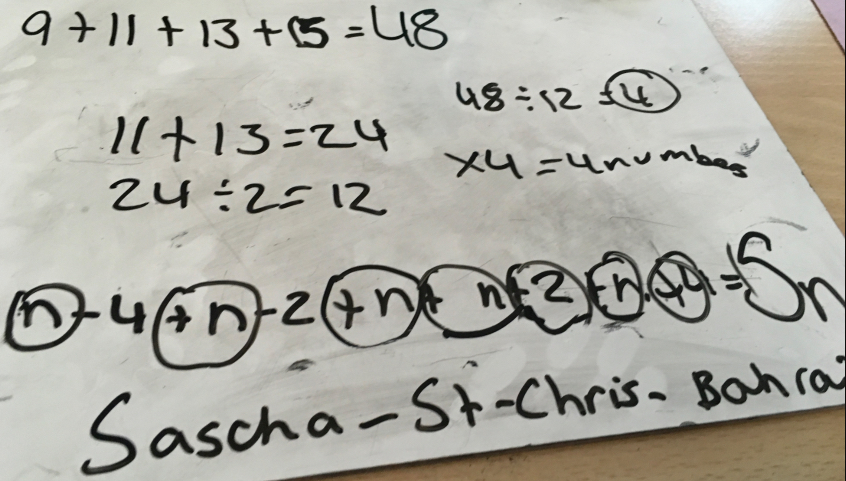 9 + 11 + 13 + 15 = 48
11 + 13 = 24
24 ÷ 2 = 12
48 ÷ 12 = 4
×4 = 4 numbers
n - 4 + n - 2 + n + n + 2 + n + 4 = 5n
Sascha - St - Chris - Bahra